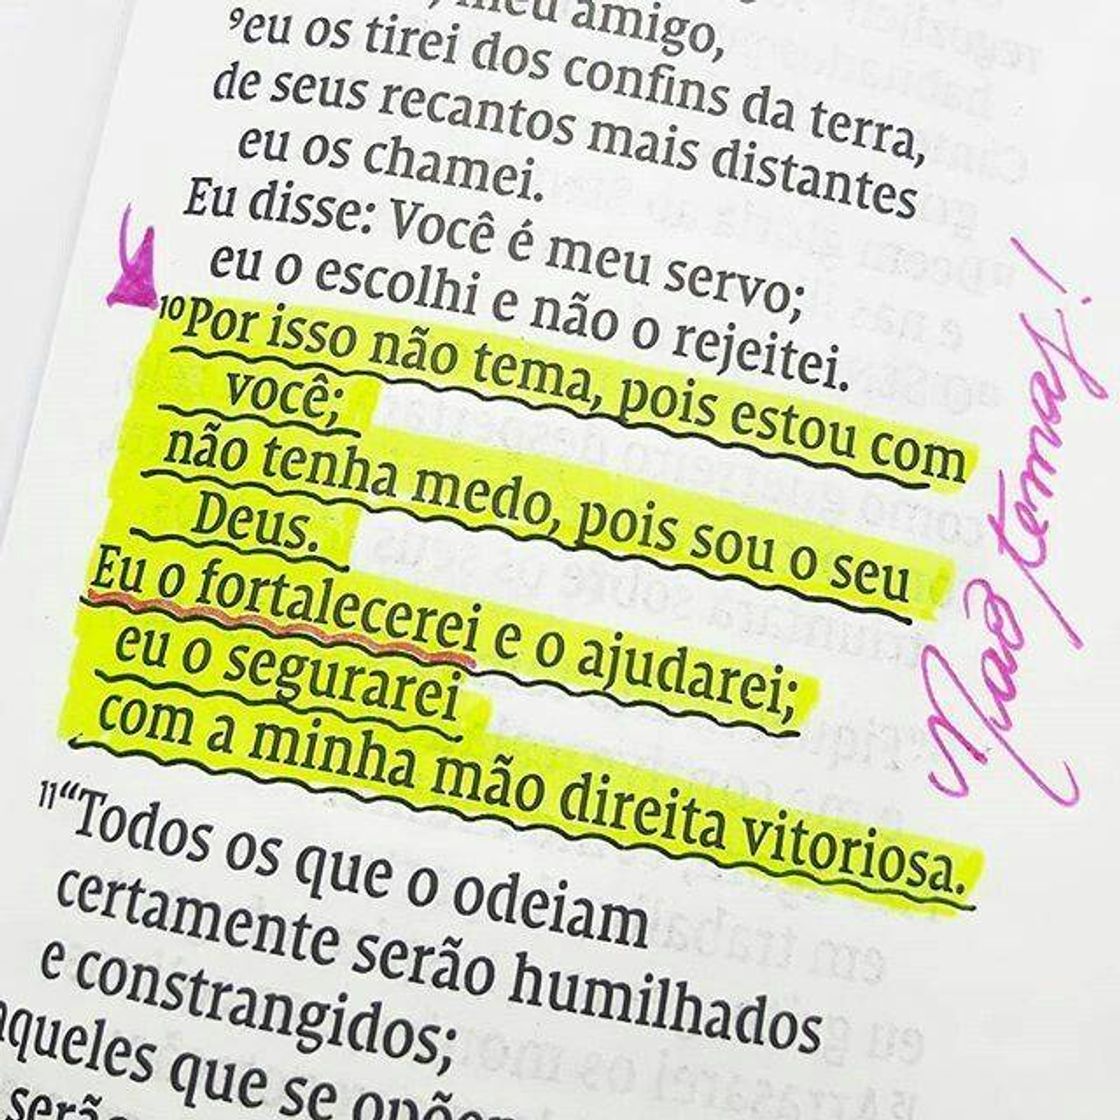 meu amigo,
⁹eu os tirei dos confins da terra,
de seus recantos mais distantes
eu os chamei.
Eu disse: Você é meu servo;
eu o escolhi e não o rejeitei.
¹⁰Por isso não tema, pois estou com
você;
não tenha medo, pois sou o seu
Deus.
Eu o fortalecerei e o ajudarei;
eu o segurarei
com a minha mão direita vitoriosa.
¹¹“Todos os que o odeiam
certamente serão humilhados
e constrangidos;
aqueles que se
Não temas!